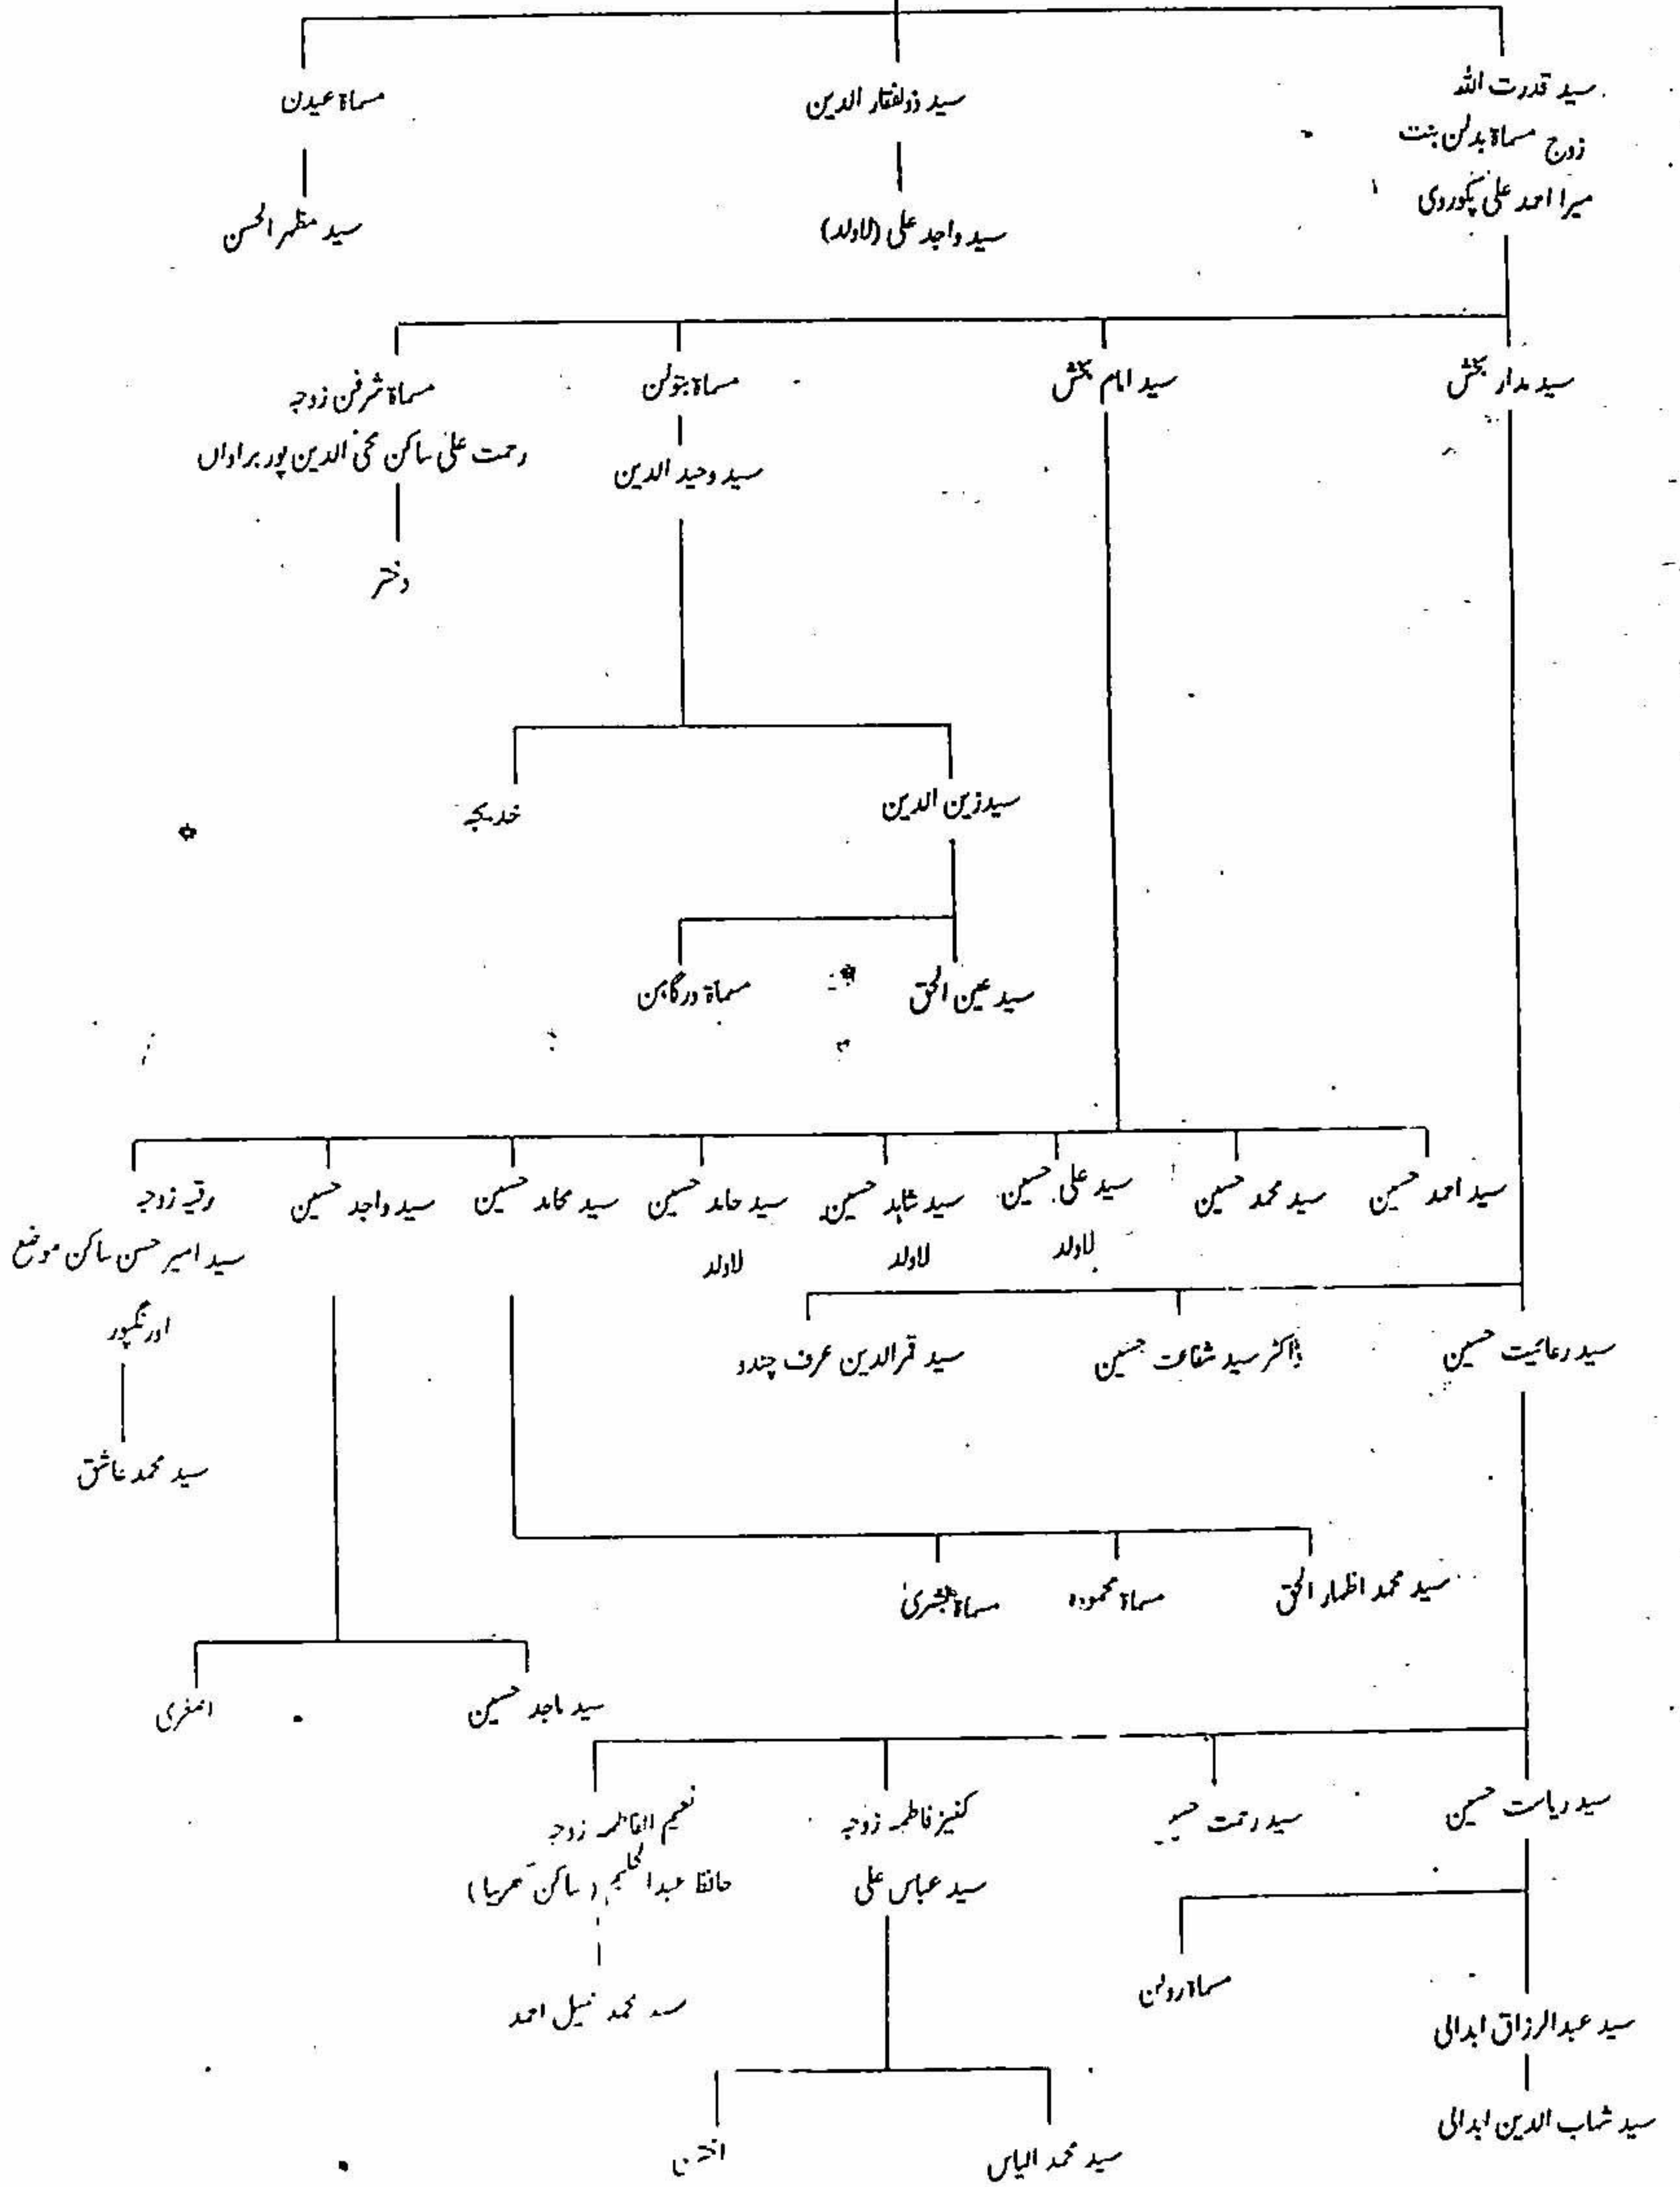 سید قدرت اللہ
زوج مسماۃ بدلن بنت
میرا احمد علی نیکوروی
سید ذولفقار الدین
مسماۃ عیدن
سید واجد علی (لاولد)
سید مظہر الحسن
سید مدار بخش
سید امام بخش
مسماۃ بتولن
مسماۃ شرفن زوجہ
رحمت علی ساکن محی الدین پور براواں
سید وحید الدین
دختر
سید زین الدین
خدیجہ
سید عین الحق
مسماۃ درگاہن
سید احمد حسین
سید محمد حسین
سید علی حسین
لاولد
سید شاہد حسین
لاولد
سید حامد حسین
لاولد
سید محامد حسین
سید واجد حسین
رقیہ زوجہ
سید امیر حسن ساکن موضع
اورنگپور
سید محمد عاشق
سید رعائیت حسین
ڈاکٹر سید شفاعت حسین
سید قمرالدین عرف چندو
سید محمد اظہار الحق
مسماۃ محمودہ
مسماۃ بشریٰ
سید ماجد حسین
اصغری
سید ریاست حسین
سید رحمت
کنیز فاطمہ زوجہ
سید عباس علی
نعیم الفاطمہ زوجہ
حافظ عبدالحلیم (ساکن)
سید عبدالرزاق ابدالی
مسماۃ رولن
سید محمد احمد
سید شہاب الدین ابدالی
سید محمد الیاس